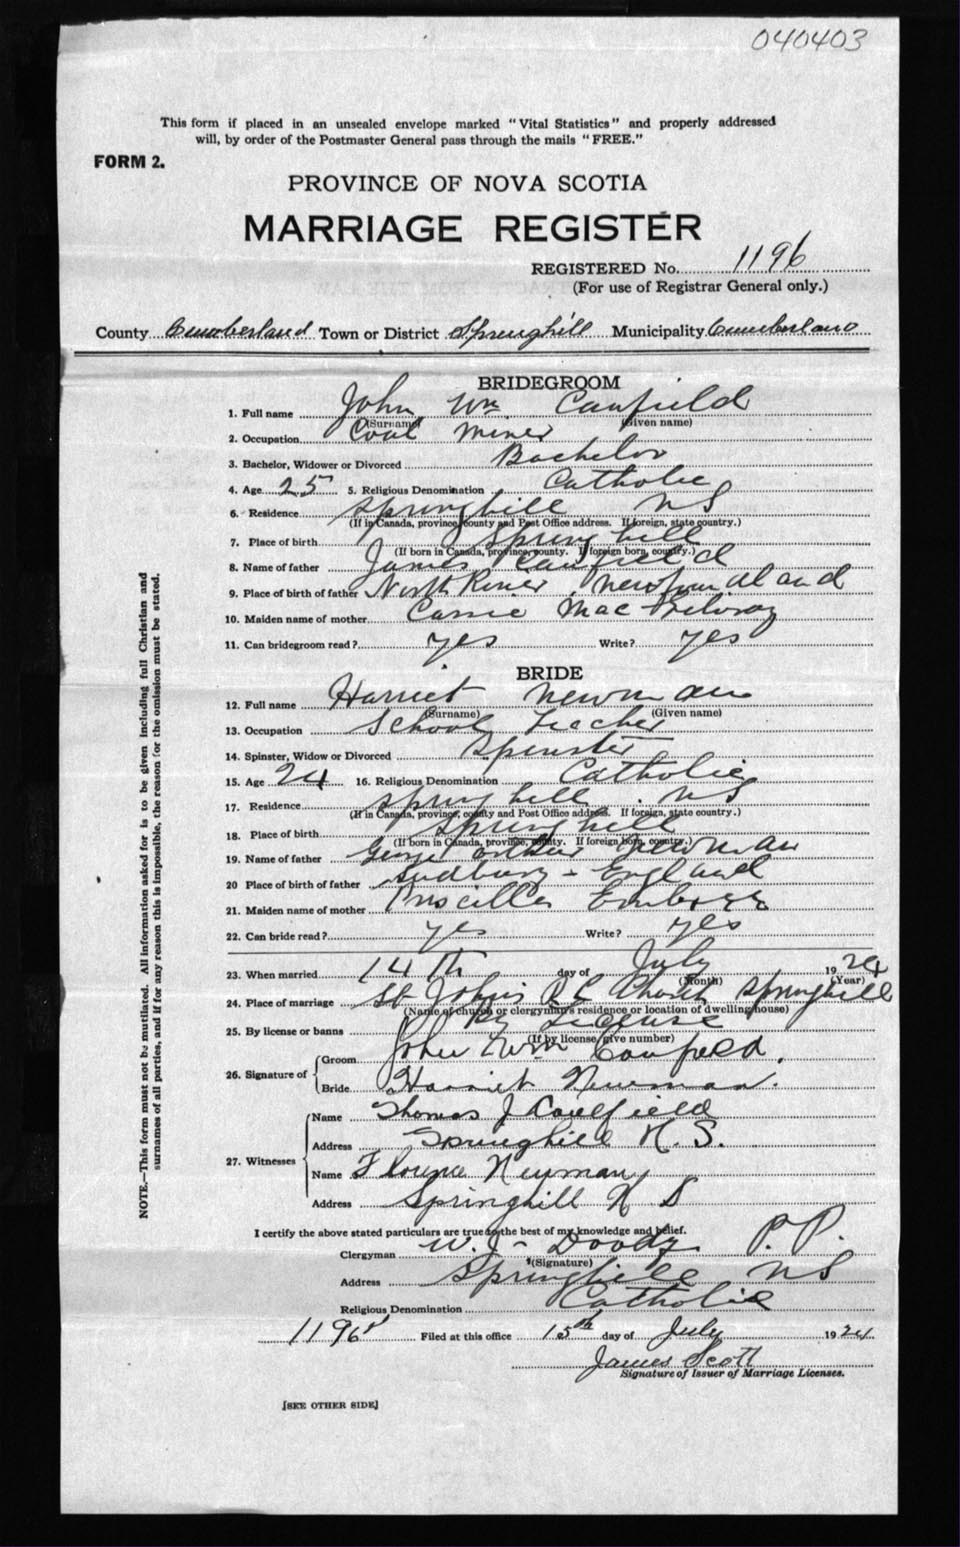 040403
This form if placed in an unsealed envelope marked "Vital Statistics" and properly addressed
will, by order of the Postmaster General pass through the mails "FREE."
FORM 2.
PROVINCE OF NOVA SCOTIA
MARRIAGE REGISTER
REGISTERED No. 1196
(For use of Registrar General only.)
County Cumberland Town or District Springhill Municipality Cumberland
BRIDEGROOM
1. Full name John Wm. Caufield
(Surname) (Given name)
2. Occupation Coal Miner
3. Bachelor, Widower or Divorced Bachelor
4. Age 25 5. Religious Denomination Catholic
6. Residence Springhill NS
(If in Canada, province, county and Post Office address. If foreign, state country.)
7. Place of birth Springhill
(If born in Canada, province, county. If foreign born, country.)
8. Name of father James Caufield
9. Place of birth of father North River, Newfoundland
10. Maiden name of mother Cassie Mac
11. Can bridegroom read? yes Write? yes
BRIDE
12. Full name Harriet Newman
(Surname) (Given name)
13. Occupation School Teacher
14. Spinster, Widow or Divorced Spinster
15. Age 24 16. Religious Denomination Catholic
17. Residence Springhill. NS
(If in Canada, province, county and Post Office address. If foreign, state country.)
18. Place of birth Springhill
(If born in Canada, province, county. If foreign born, country.)
19. Name of father George Arthur Newman
20 Place of birth of father Sudbury - England
21. Maiden name of mother Priscilla
22. Can bride read? yes Write? yes
23. When married 14th day of July 1924
(Month) (Year)
24. Place of marriage St John's R C Church Springhill
(Name of church or clergyman's residence or location of dwelling house)
25. By license or banns By License
(If by license, give number)
26. Signature of Groom John Wm Caufield.
Bride Harriet Newman.
27. Witnesses Name Thomas J Caulfield
Address Springhill N. S.
Name Florence Newman
Address Springhill N S
I certify the above stated particulars are true to the best of my knowledge and belief.
Clergyman W. J. Doody P. P.
(Signature)
Address Springhill NS
Religious Denomination Catholic
1196 Filed at this office 15th day of July 1924
James Scott
Signature of Issuer of Marriage Licenses.
[SEE OTHER SIDE]
NOTE.—This form must not be mutilated. All information asked for is to be given including full Christian and
surnames of all parties, and if for any reason this is impossible, the reason for the omission must be stated.